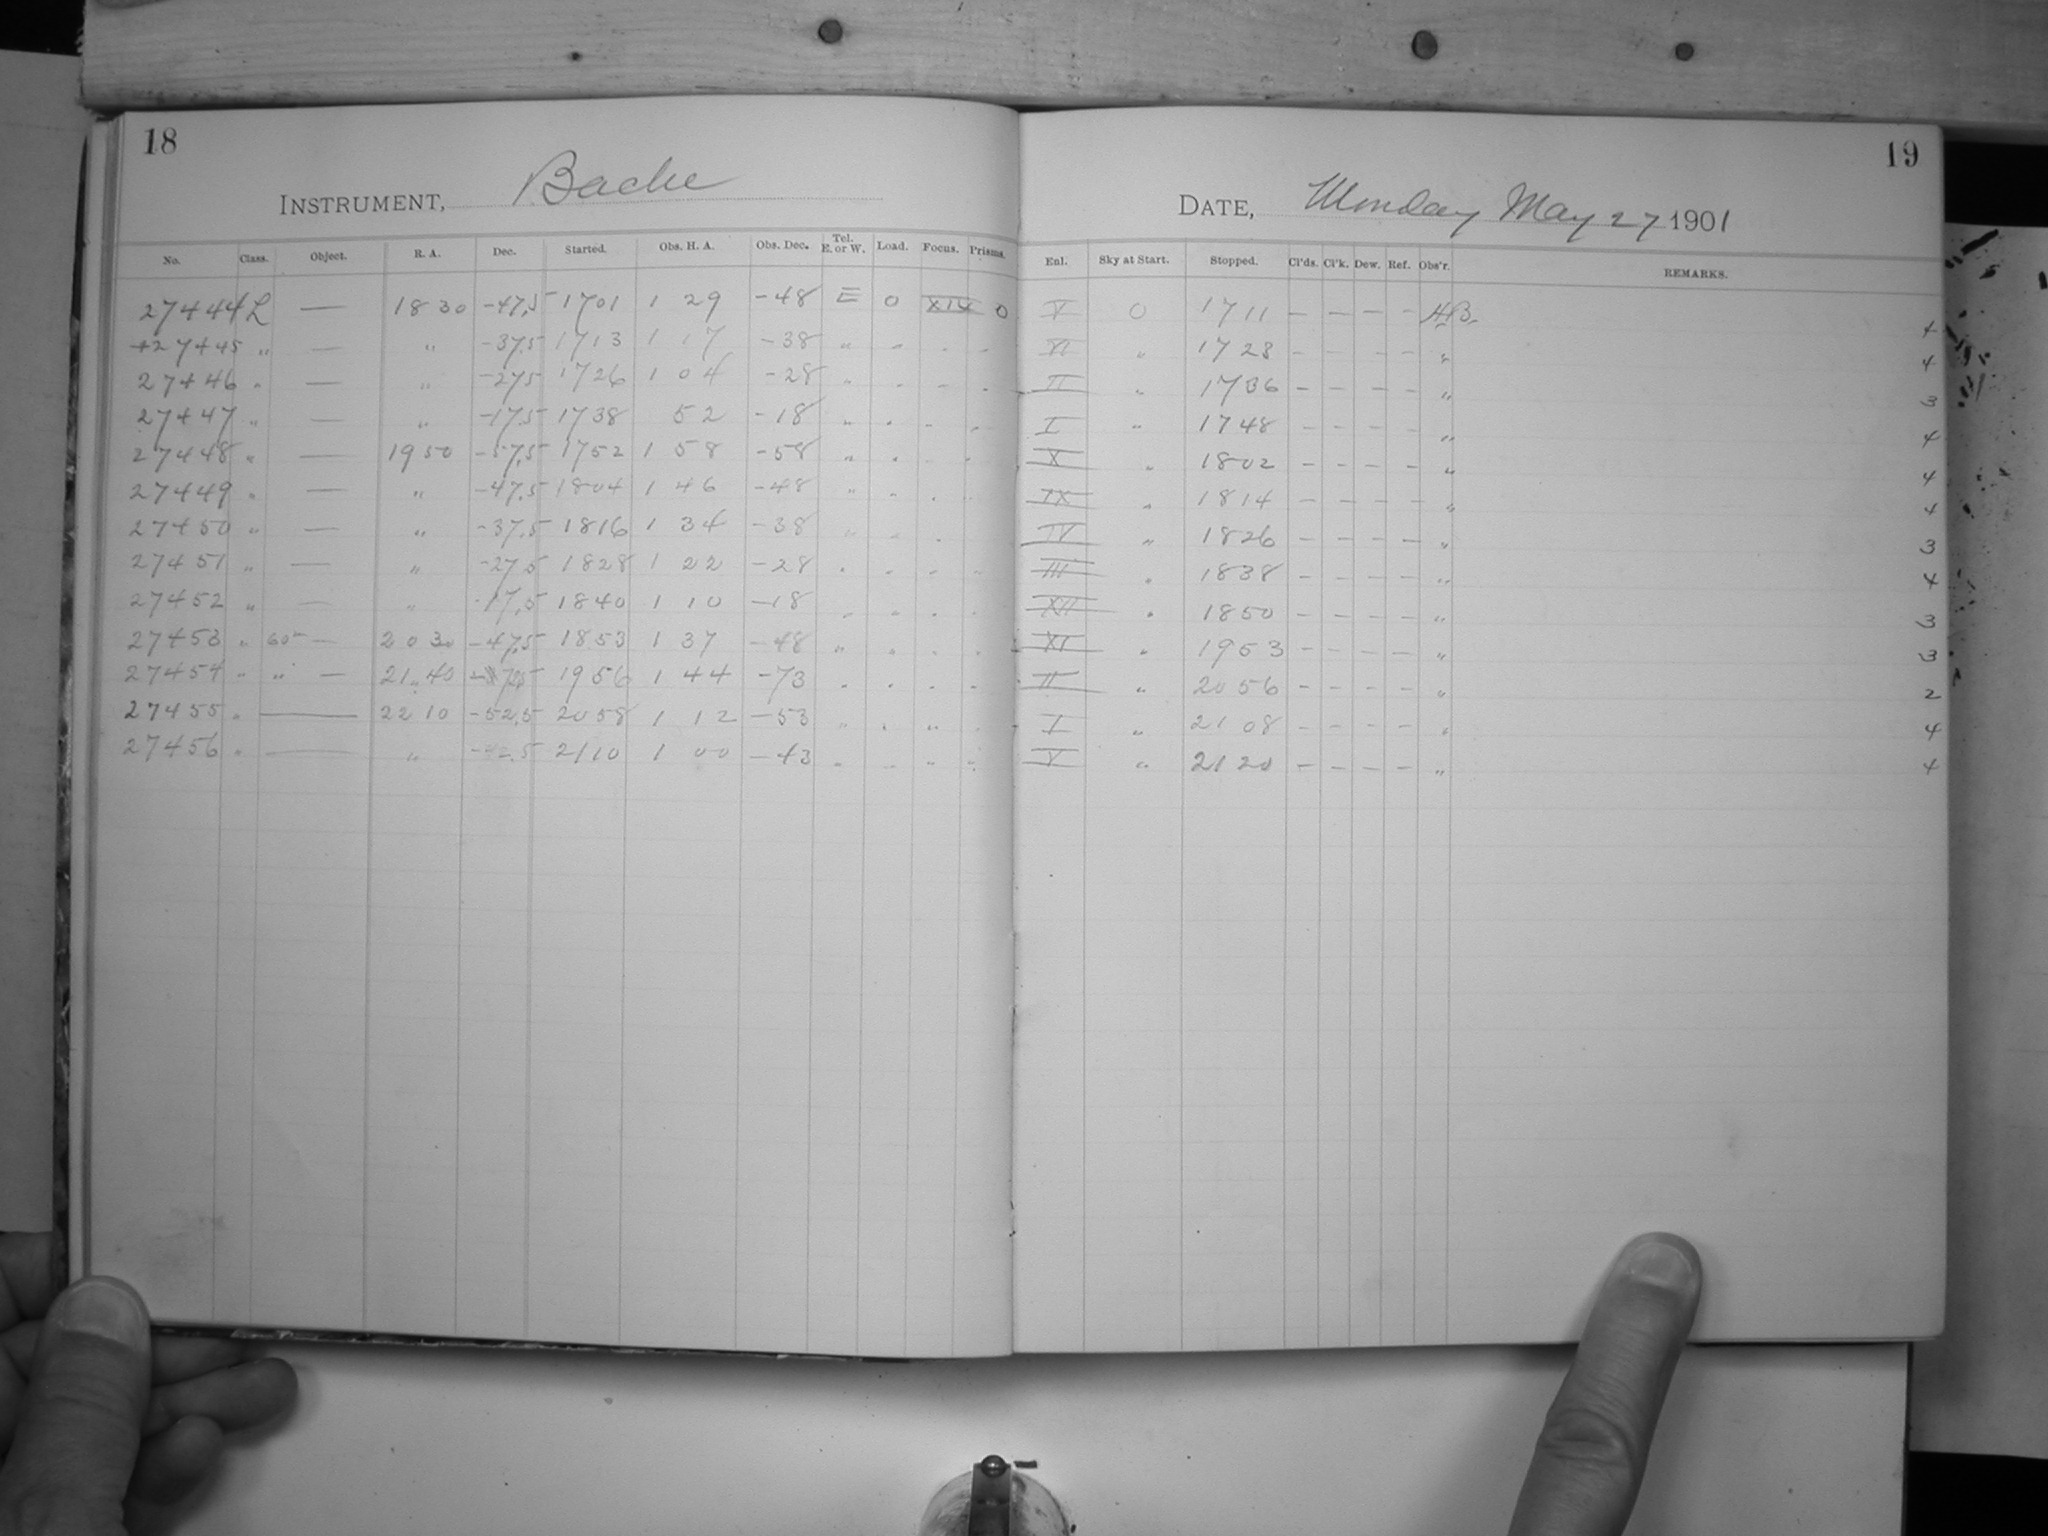 18
INSTRUMENT, Bache
No. Class. Object. R. A. Dec. Started. Obs. H. A. Obs. Dec. Tel. E. or W. Load. Focus. Prisms.
27444 L — 18 30 -47,5 1701 1 29 -48 E 0 XIV 0
+27445 " — " -37,5 1713 1 17 -38 " " " "
27446 " — " -27,5 1726 1 04 -28 " " " "
27447 " — " -17,5 1738 52 -18 " " " "
27448 " — 19 50 -57,5 1752 1 58 -58 " " " "
27449 " — " -47,5 1804 1 46 -48 " " " "
27450 " — " -37,5 1816 1 34 -38 " " "
27451 " — " -27,5 1828 1 22 -28 " " " "
27452 " — " -17,5 1840 1 10 -18 " " " "
27453 " 60m — 20 30 -47,5 1853 1 37 -48 " " " "
27454 " " — 21 40 1956 1 44 -73 " " " "
27455 " — 22 10 -52,5 2058 1 12 -53 " " " "
27456 " — " -42,5 2110 1 00 -43 " " " "
19
DATE, Monday May 27 1901
Enl. Sky at Start. Stopped. Cl'ds. Cl'k. Dew. Ref. Obs'r. REMARKS.
V 0 1711 — — — — 4
XI " 1723 — — — — " 4
II " 1736 — — — — " 3
I " 1748 — — — — " 4
X " 1802 — — — — " 4
IX " 1814 — — — — " 4
IV " 1826 — — — — " 3
III " 1838 — — — — " 4
XII " 1850 — — — — " 3
XI " 1953 — — — — " 3
II " 2056 — — — — " 2
I " 2108 — — — — " 4
V " 2120 — — — — " 4